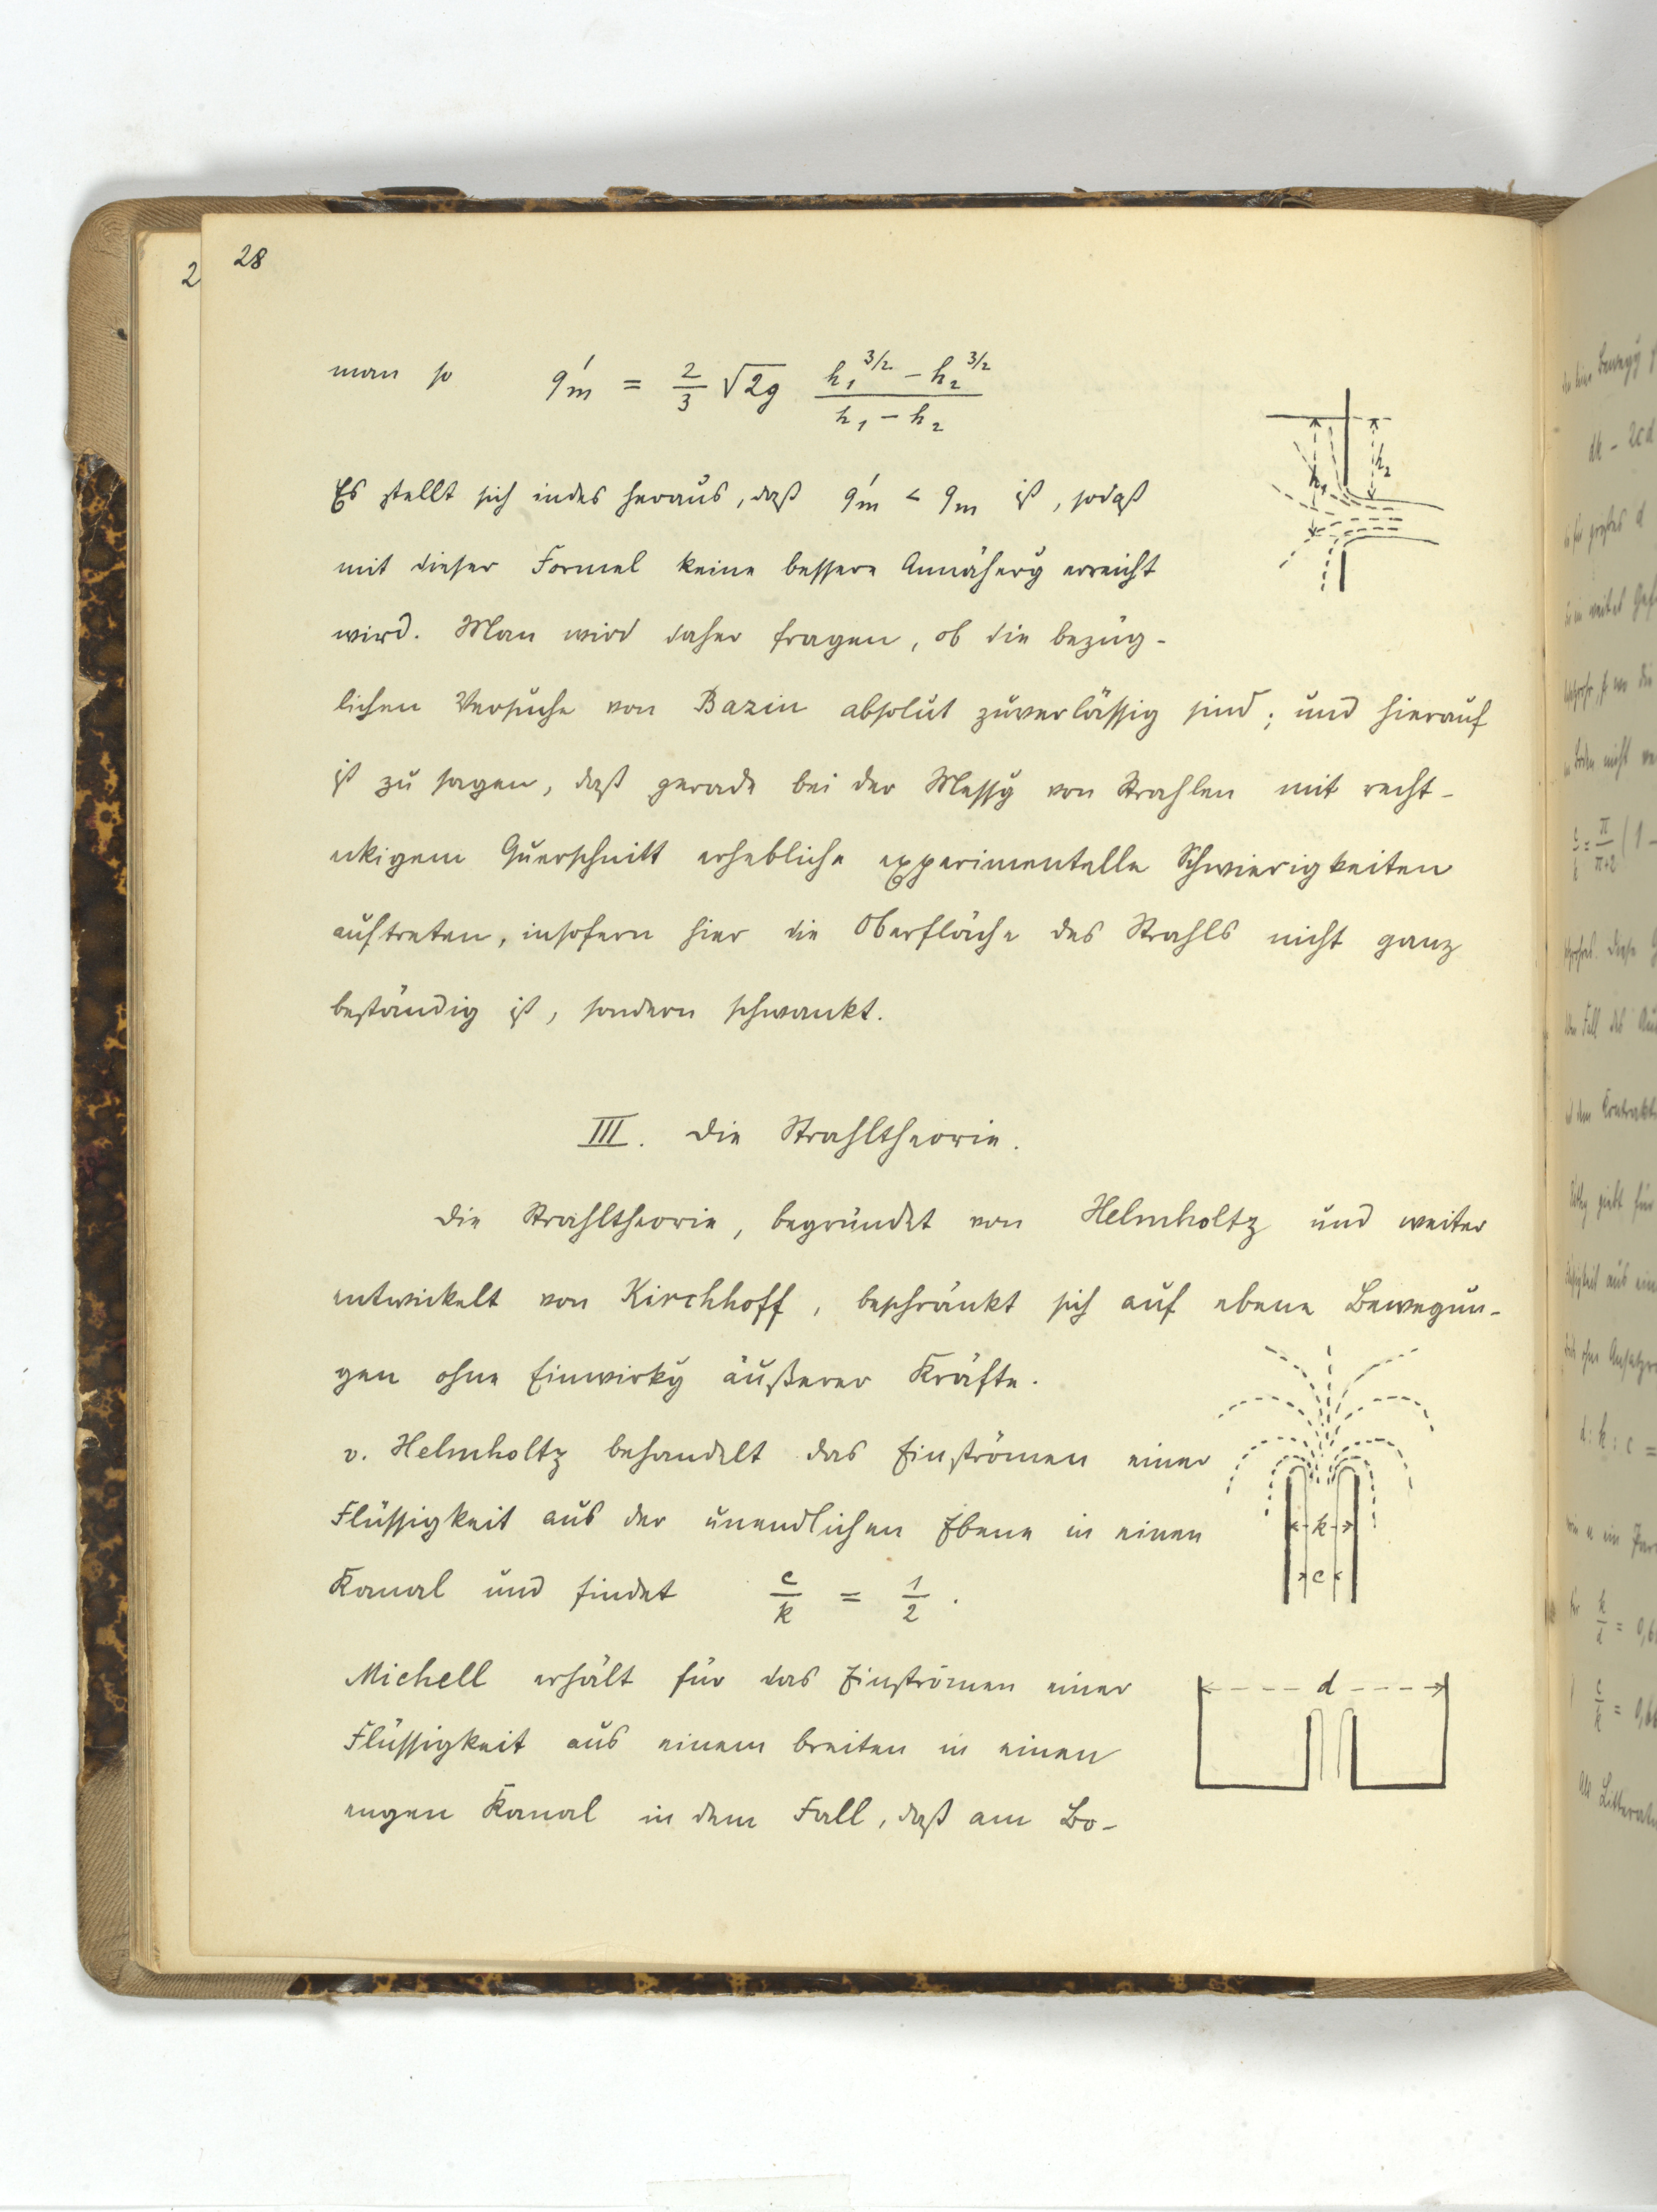 28
2
man so q'm = 2/3 √2g (h₁^3/2 − h₂^3/2)/(h₁ − h₂)
Es stellt sich indes heraus, daß q'm < qm ist, sodaß
mit dieser Formel keine bessere Annäherg erreicht
wird. Man wird daher fragen, ob die bezüg-
lichen Versuche von Bazin absolut zuverlässig sind; und hierauf
ist zu sagen, daß gerade bei der Messg von Strahlen mit recht-
eckigem Querschnitt erhebliche experimentelle Schwierigkeiten
auftreten, insofern hier die Oberfläche des Strahls nicht ganz
beständig ist, sondern schwankt.
h₁ h₂
III. Die Strahltheorie.
Die Strahltheorie, begründet von Helmholtz und weiter
entwickelt von Kirchhoff, beschränkt sich auf ebene Bewegun-
gen ohne Einwirkg äußerer Kräfte.
v. Helmholtz behandelt das Einströmen einer
Flüssigkeit aus der unendlichen Ebene in einen
Kanal und findet c/k = 1/2.
k
c
Michell erhält für das Einströmen einer
Flüssigkeit aus einem breiten in einen
engen Kanal in dem Fall, daß am Bo-
d